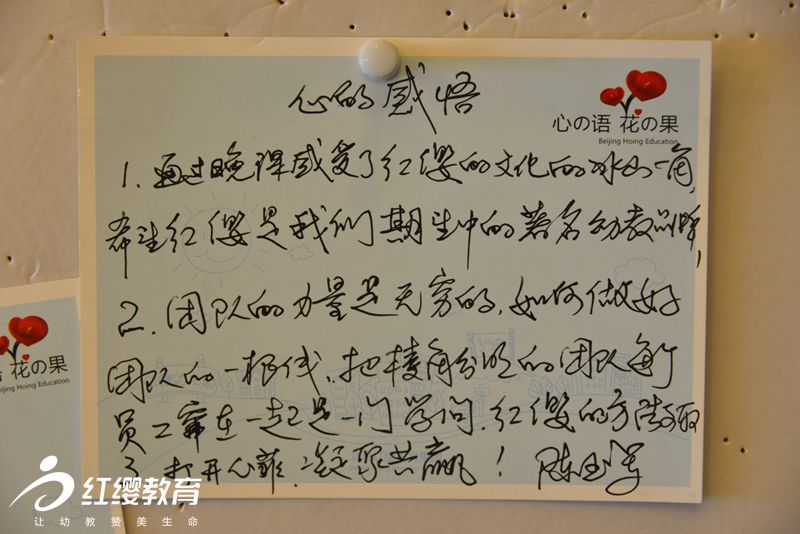 心的感悟
心の语 花の果
Beijing Hoing Education
1. 通过晚课感受了红缨的文化的冰山一角,
希望红缨是我们期望中的著名幼教品牌,
2. 团队的力量是无穷的, 如何做好
团队的一根线, 把棱角分明的团队每个
员工串在一起是一门学问, 红缨的方法
3. 打开心扉, 凝聚共赢!
语 花の果
Beijing Hoing Education
红缨教育
让幼教赞美生命